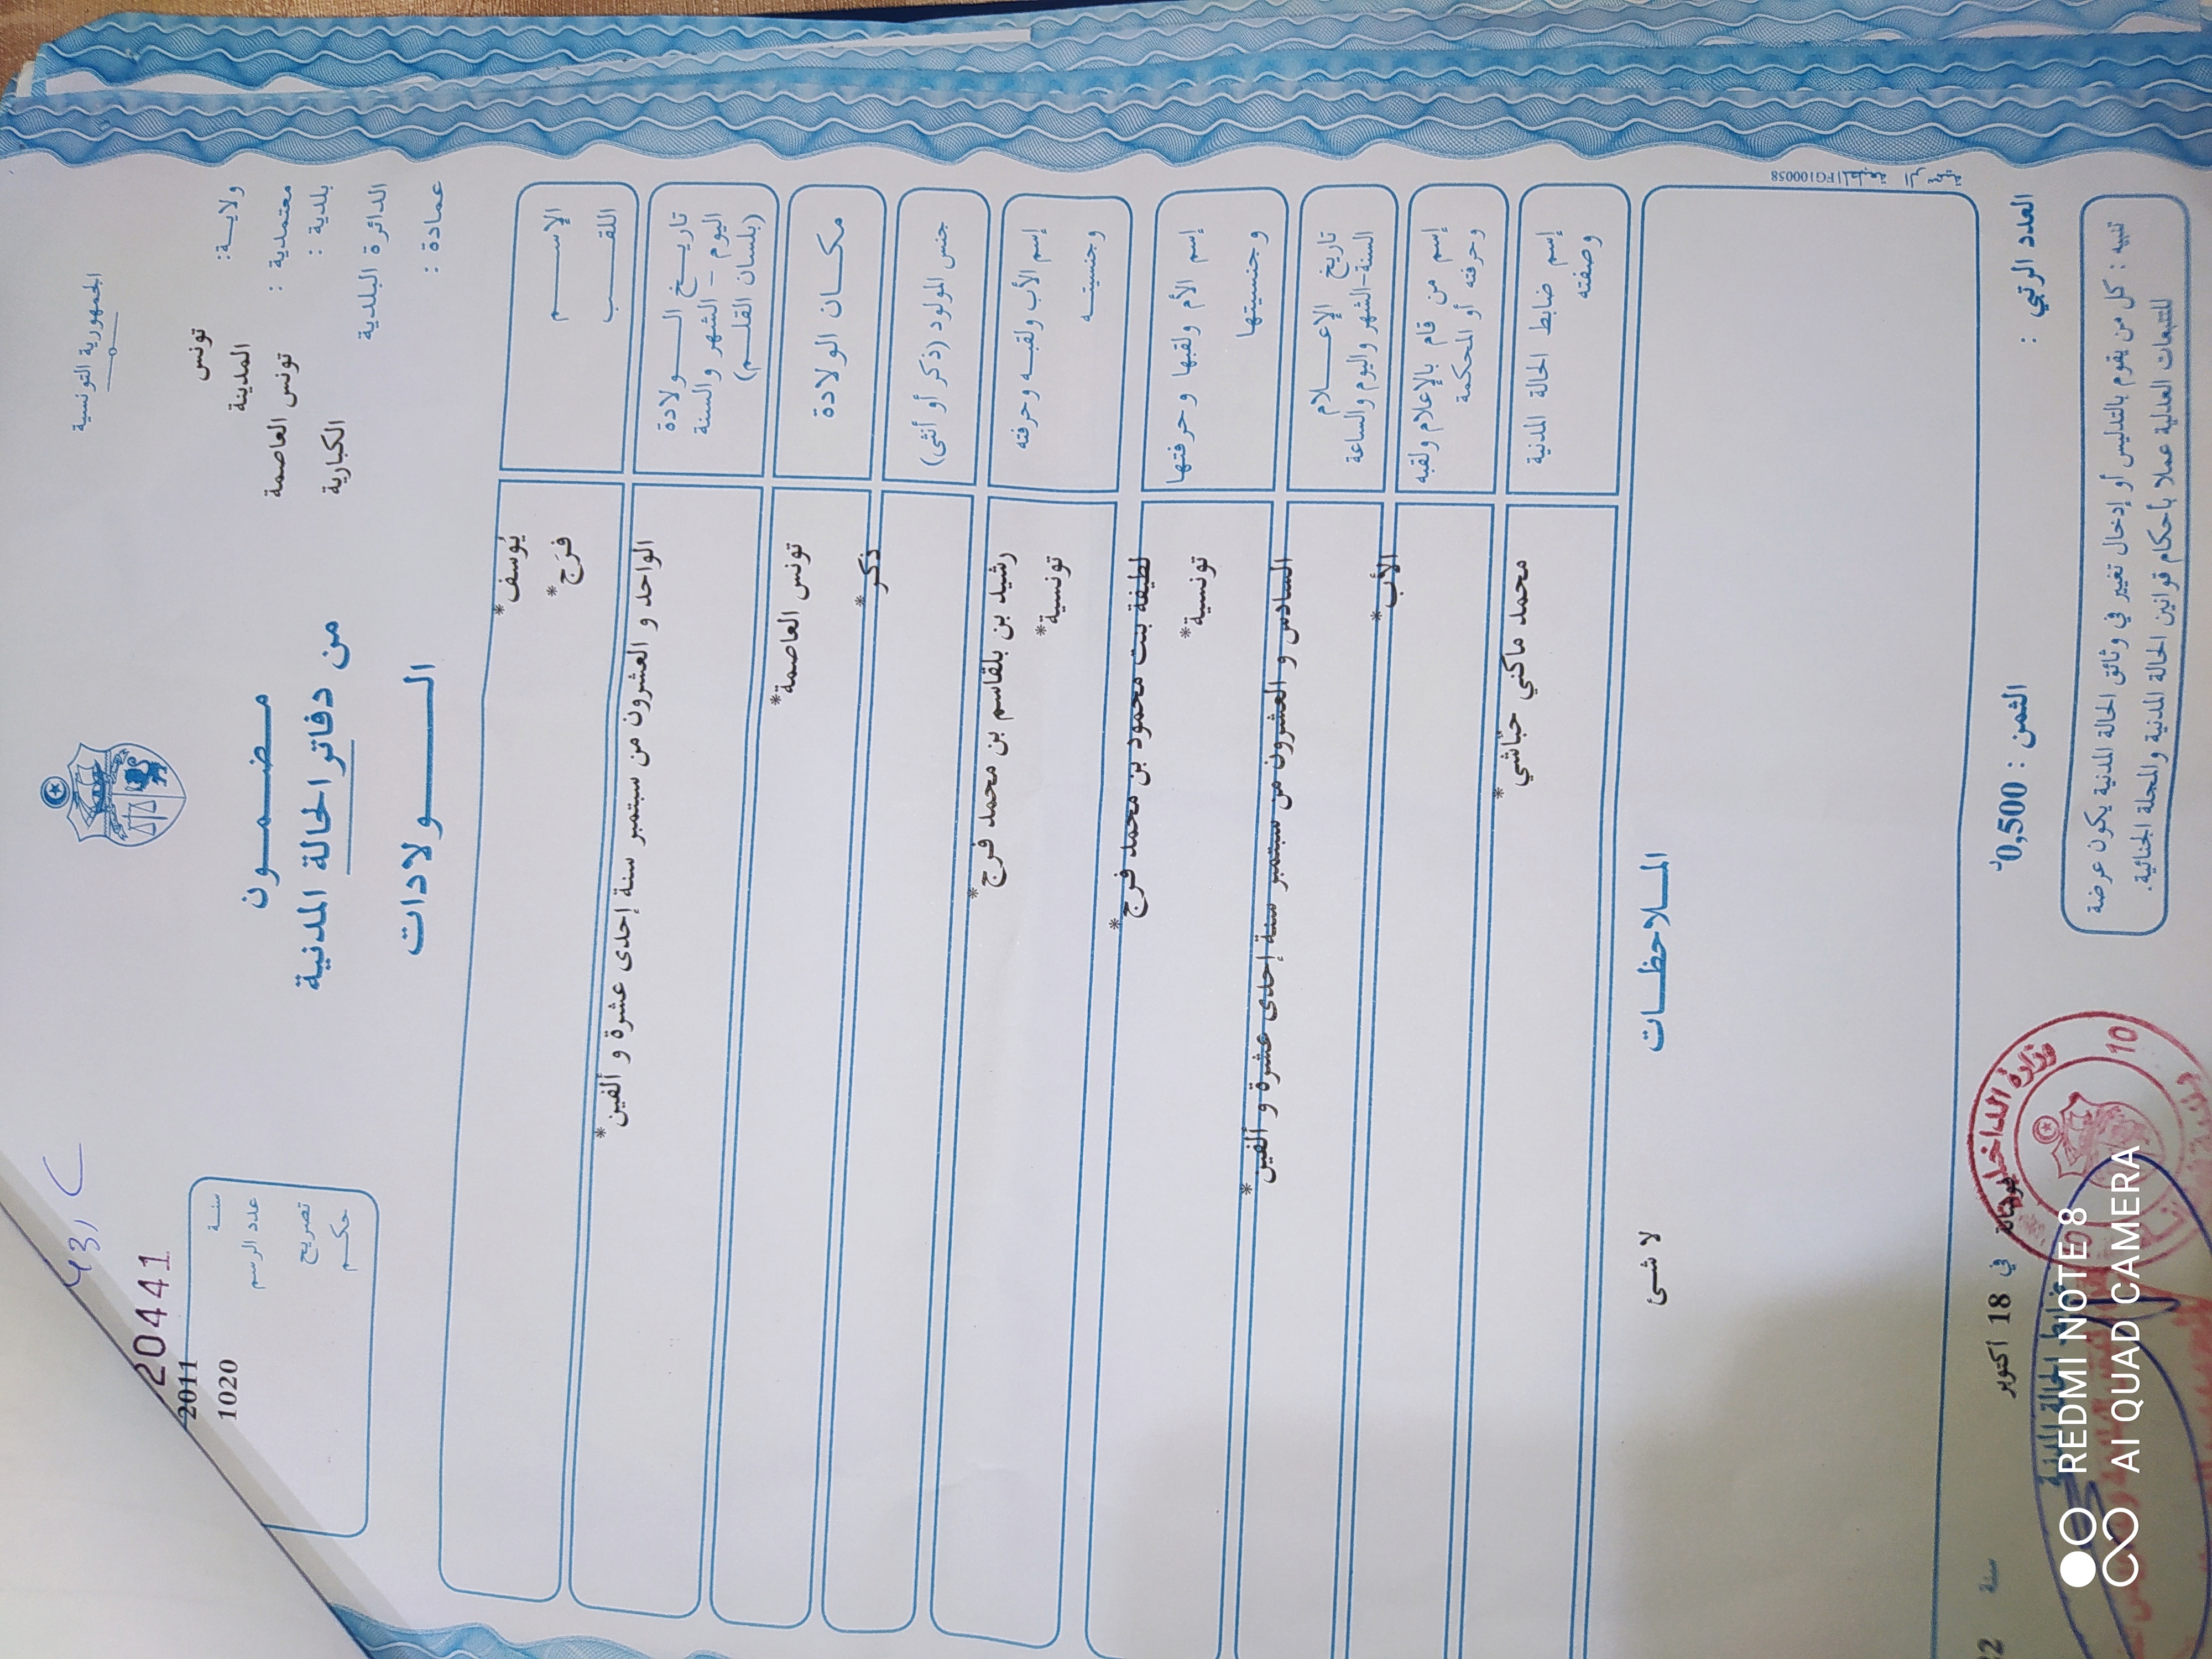 الجمهورية التونسية
ولاية: تونس
معتمدية : المدينة
بلدية : تونس العاصمة
الدائرة البلدية الكبارية
عمادة :
مضمون
من دفاتر الحالة المدنية
الولادات
431 C
20441
سنة 2011
عدد الرسم 1020
تصريح
حكم
الإسم يُوسف*
اللقب فرَج*
تاريخ الولادة الواحد و العشرون من سبتمبر سنة إحدى عشرة و ألفين*
اليوم - الشهر والسنة
(بلسان القلم)
مكان الولادة تونس العاصمة*
جنس المولود (ذكر أو أنثى) ذكر*
إسم الأب ولقبه وحرفته رشيد بن بلقاسم بن محمد فرج*
وجنسيته تونسية*
إسم الأم ولقبها وحرفتها لطيفة بنت محمود بن محمد فرج*
وجنسيتها تونسية*
تاريخ الإعلام السادس و العشرون من سبتمبر سنة إحدى عشرة و ألفين*
السنة-الشهر واليوم والساعة
إسم من قام بالإعلام ولقبه الأب*
وحرفته أو المحكمة
إسم ضابط الحالة المدنية محمد ماكني حبّاشي*
وصفته
الملاحظات
لا شئ
المطبعة الرسمية
FG100058
العدد الرتبي :
الثمن : 0,500د
في 18 أكتوبر
سنة
تنبيه : كل من يقوم بالتدليس أو إدخال تغيير في وثائق الحالة المدنية يكون عرضة
للتتبعات العدلية عملا بأحكام قوانين الحالة المدنية والمجلة الجنائية.
وزارة الداخلية
10
ضابط الحالة المدنية
REDMI NOTE 8
AI QUAD CAMERA